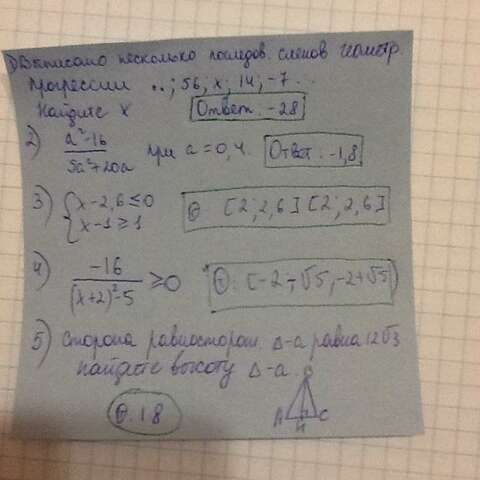 1) Выписано несколько последов. членов геометр.
прогрессии ..; 56; x; 14; -7 ..
Найдите x Ответ: -28
2) a²-16 / 5a²+20a при a = 0,4. Ответ: -1,8
3) { x-2,6 ≤ 0
x-1 ≥ 1 О: [2; 2,6] [2; 2,6]
4) -16 / (x+2)²-5 ≥ 0 О: (-2-√5; -2+√5)
5) Сторона равносторон. Δ-а равна 12√3
найдите высоту Δ-а.
О. 18
B
A H C